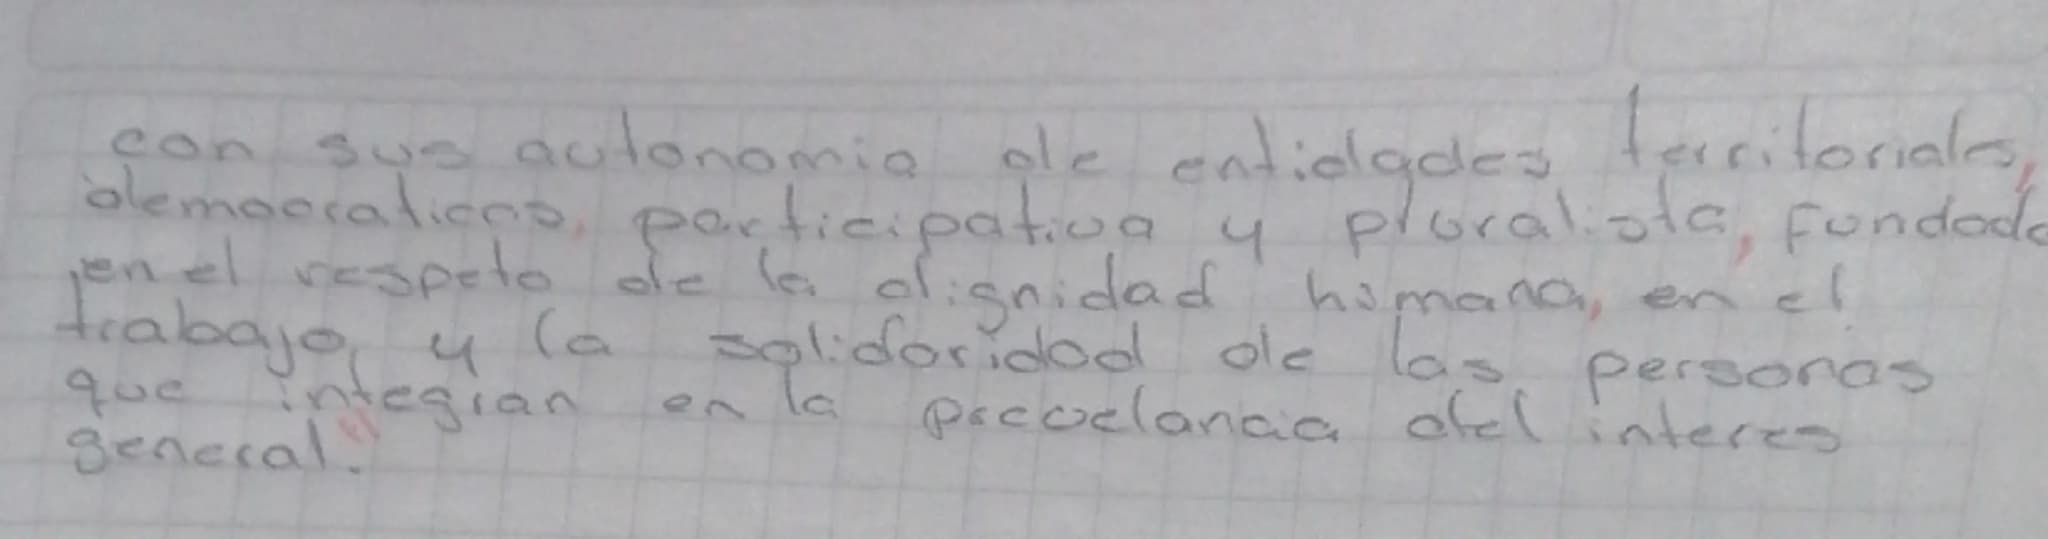 con sus autonomia de entidades territoriales,
democraticas, participativa y pluralista, fundada
en el respeto de la dignidad humana, en el
trabajo, y la solidaridad de las personas
que integran en la prevelancia del interes
general."